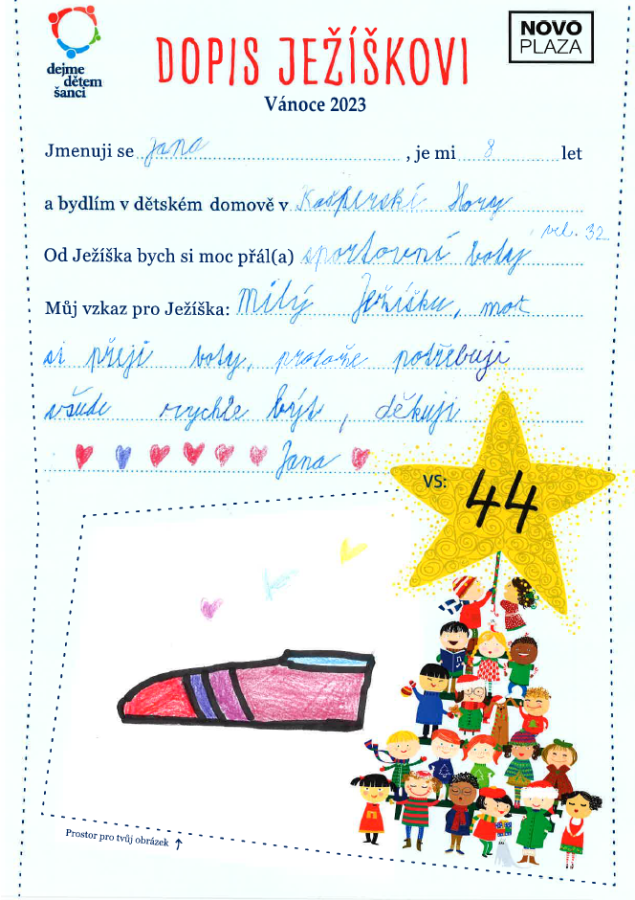 dejme
dětem
šanci
DOPIS JEŽÍŠKOVI
NOVO
PLAZA
Vánoce 2023
Jmenuji se Jana, je mi 8 let
a bydlím v dětském domově v Kašperski Hory
Od Ježíška bych si moc přál(a) sportovní boty vel. 32
Můj vzkaz pro Ježíška: Milý Ježíšku, moc
si přeji boty, protože potřebuji
všude rychle být, děkuji
Jana
VS: 44
Prostor pro tvůj obrázek ↑